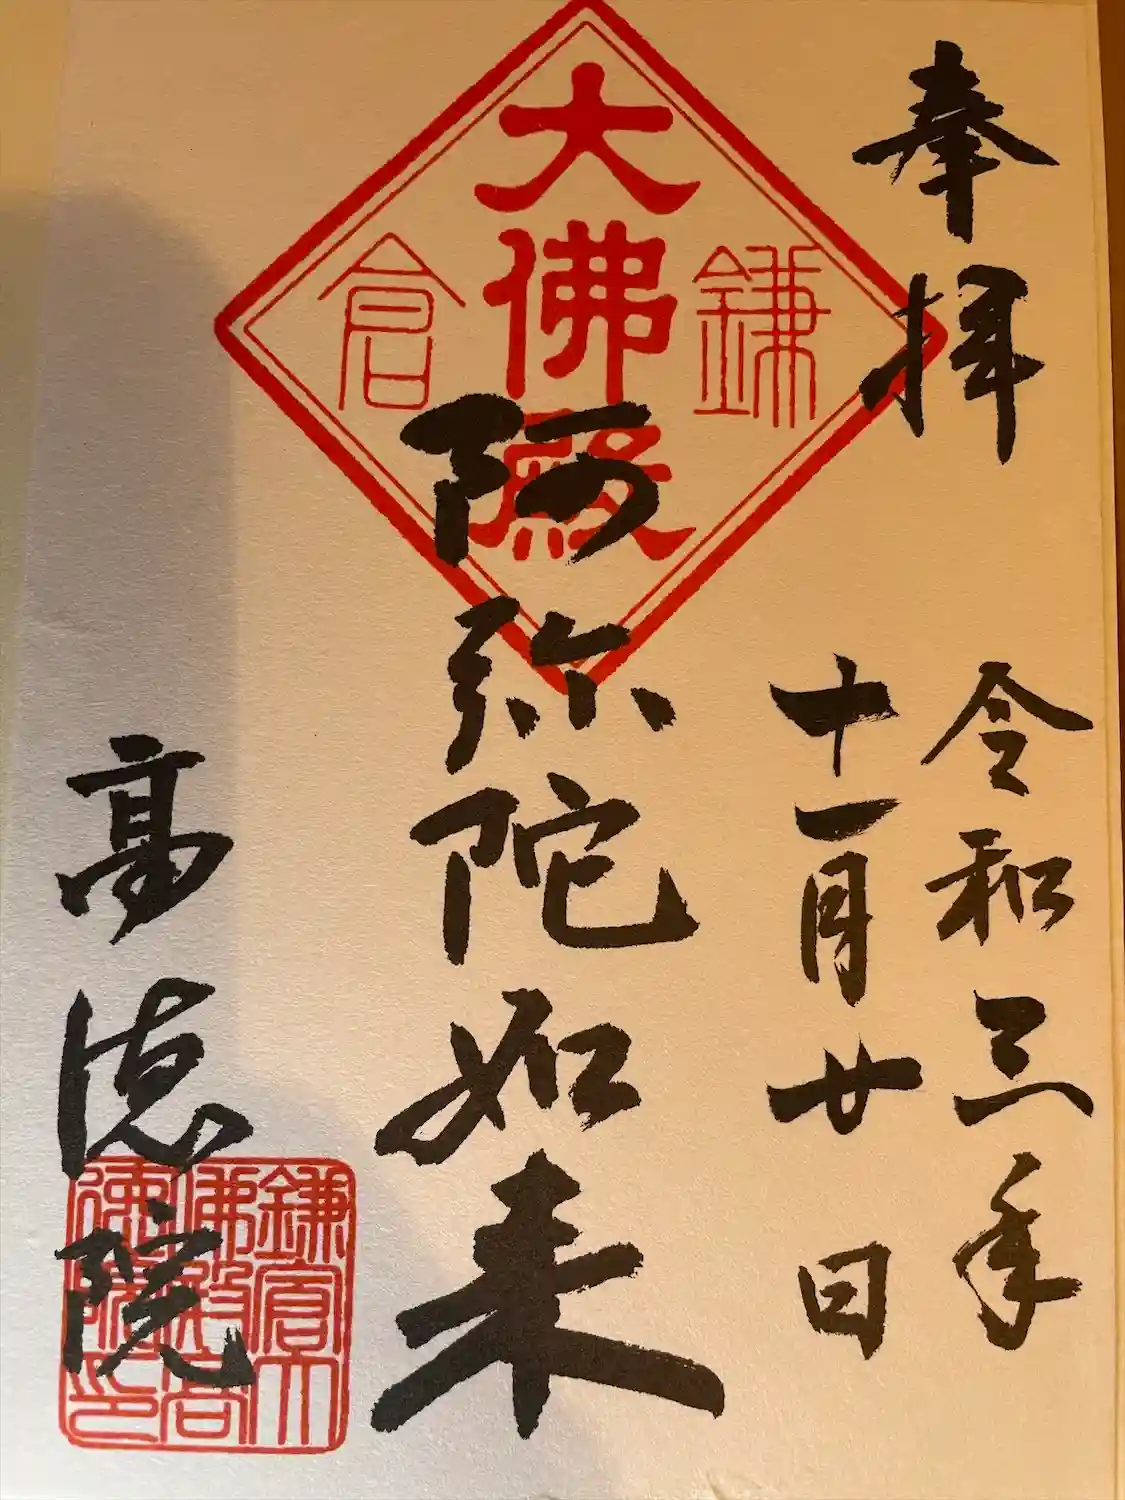 奉拝
令和三年
十一月廿日
大佛殿
鎌倉
阿弥陀如来
高徳院
鎌倉大
佛殿高
德院印